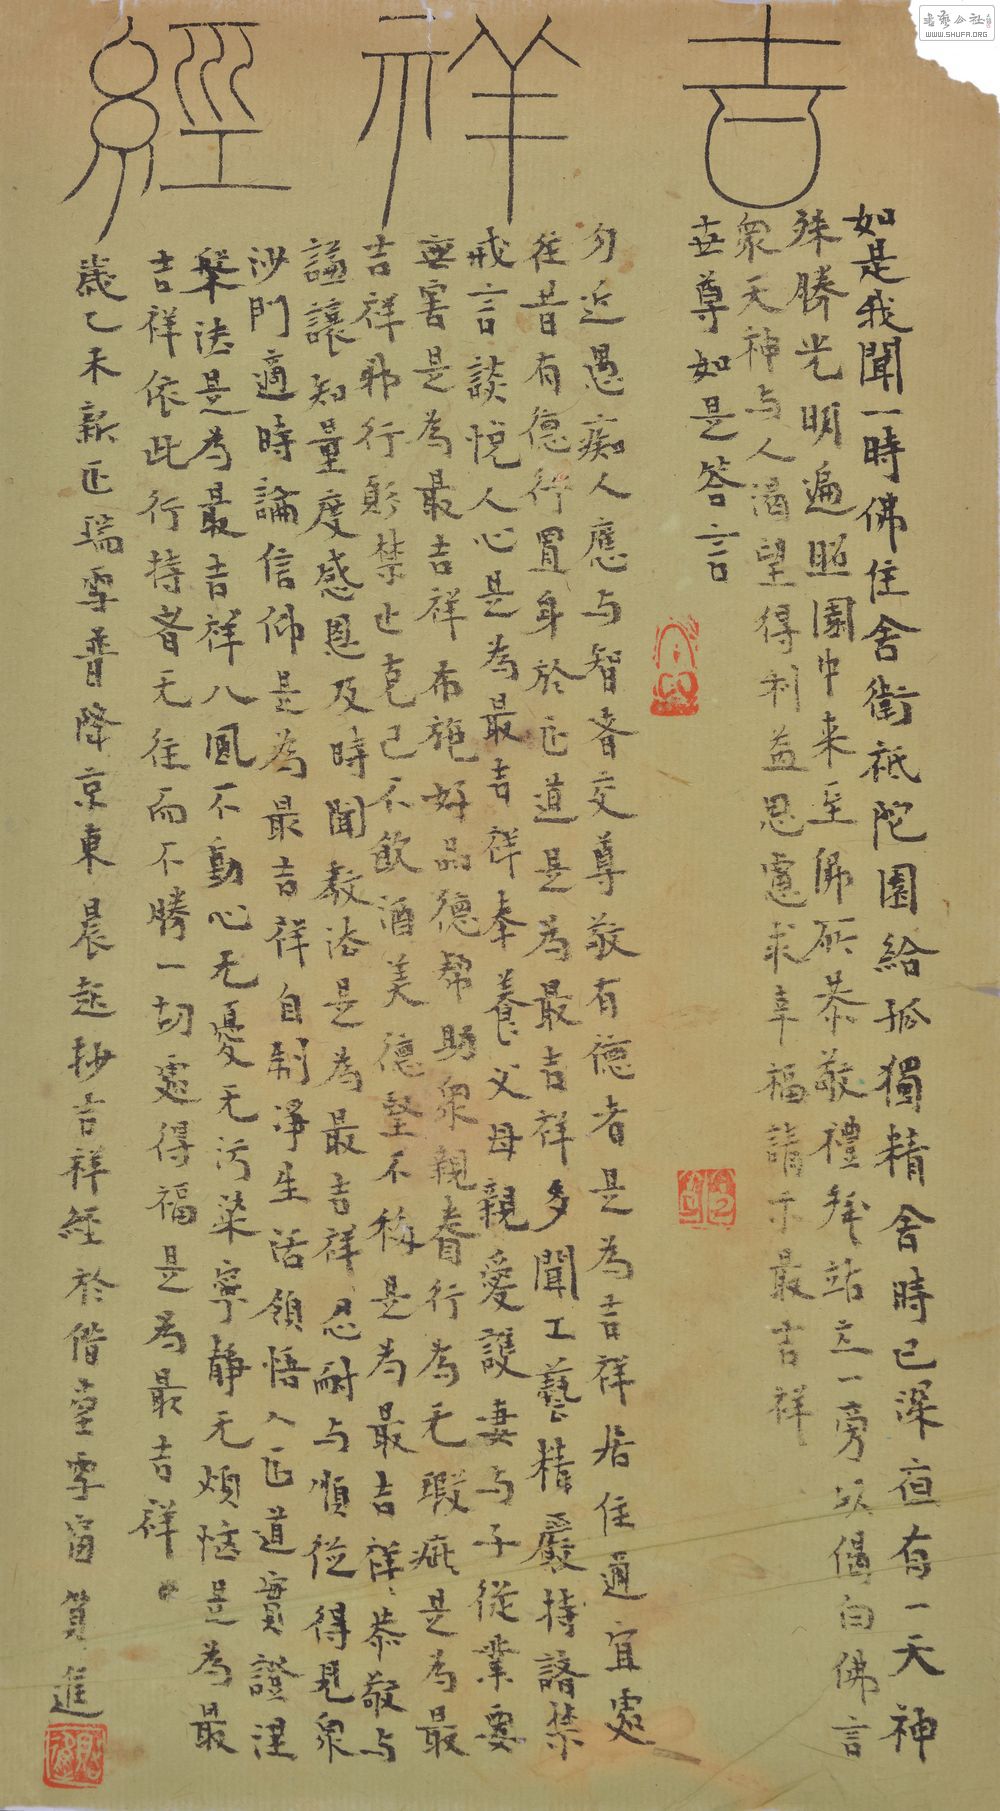 吉祥經
如是我聞一時佛住舍衛祗陀園給孤獨精舍時已深夜有一天神
殊勝光明遍照園中来至佛所恭敬禮拜站立一旁以偈白佛言
眾天神与人渴望得利益思慮求幸福請示最吉祥
世尊如是答言
勿近愚痴人應与智者交尊敬有德者是為吉祥居住適宜處
往昔有德行置身於正道是為最吉祥多聞工藝精嚴持諸禁
戒言談悅人心是為最吉祥奉養父母親愛護妻与子從業要
無害是為最吉祥布施好品德幫助眾親眷行為无瑕疵是為最
吉祥邪行須禁止克己不飲酒美德堅不移是為最吉祥恭敬与
謙讓知量度感恩及時聞教法是為最吉祥忍耐与順從得見眾
沙門適時論信仰是為最吉祥自制淨生活領悟八正道實證涅
槃法是為最吉祥八風不動心无憂无污染寧静无煩惱是為最
吉祥依此行持者无往而不勝一切處得福是為最吉祥
歲乙未新正瑞雪普降京東晨起抄吉祥經於借堂雪窗 進
書藝公社
WWW.SHUFA.ORG